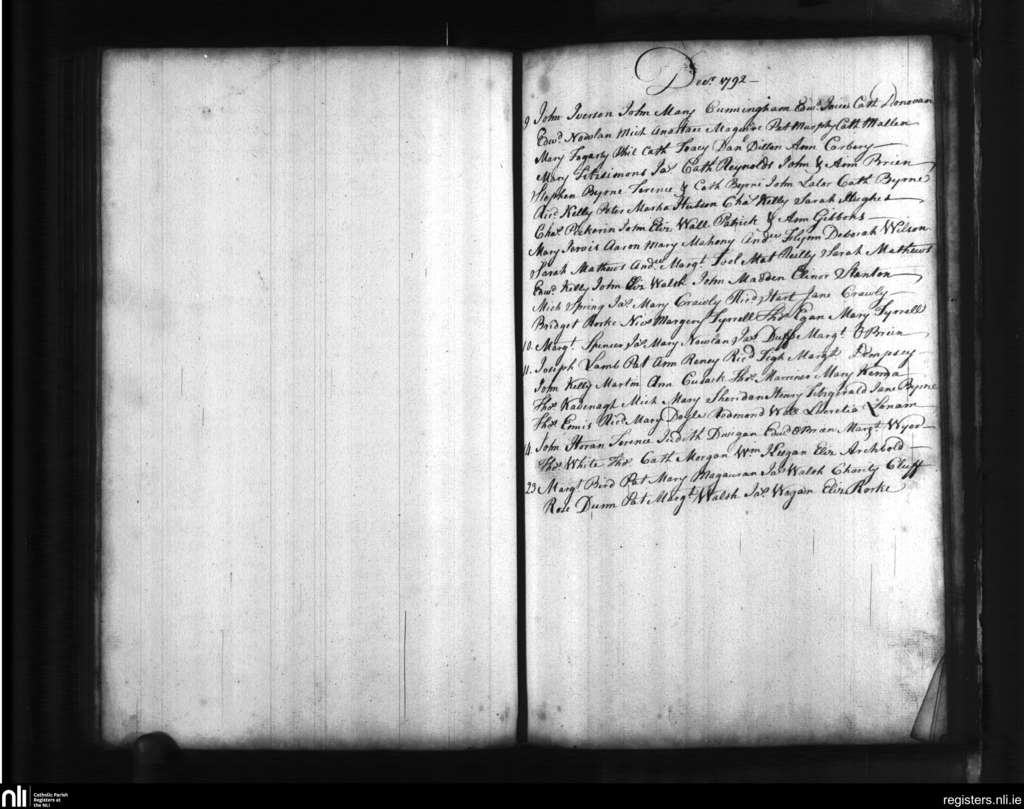 Decr. 1792
9 John Iverson John Mary Cunningham Edwd. Cath Donovan
Edwd. Nowlan Mich Anastace Maguire Pat Murphy Cath Mallen
Mary Fogarty Phil Cath Tracy Danl Dillon Ann Carbery
Mary Fitzsimons Jas. Cath Reynolds John & Ann Brien
Stephen Byrne Terence & Cath Byrne John Lalor Cath Byrne
Ricd. Kelly Peter Martha Hutson Chas. Kelly Sarah Hughes
Chas. Pickerin John Eliz Wall Patrick & Ann Gibbons
Mary Jervis Aaron Mary Mahony Andw Flynn Deborah Wilson
Sarah Mathews Andw. Margt. Tool Mat Reilly Sarah Mathews
Edwd. Kelly John Eliz Walsh John Madden Elinor Stanton
Mich Spring Jas. Mary Crawly Richd Hart Jane Crawly
Bridget Rorke Nics Margery Tyrrell Thos. Egan Mary Tyrrell
10. Margt. Spencer Jas. Mary Nowlan Jas. Duffe Margt. OBrien
11. Joseph Lamb Pat Ann Reney Ricd Tigh Margt. Dempsey
John Kelly Martin Ann Cusack Thos. Mary Kenna
Thos. Kavenagh Mich Mary Sheridan Henry Fitzgerald Jane Byrne
Thos. Ennis Ricd. Mary Doyle Redmond Wall Lucretia
14. John Horan Terence Judith Dwigan Edwd OBrien Margt.
Thos. White Thos. Cath Morgan Wm Keegan Eliz Archbold
23 Margt Bird Pat Mary Magauran Jas. Walsh Charity Cluff
Rose Dunn Pat Margt. Walsh Jas. Wogan Eliz Rorke
nli
Catholic Parish
Registers at
the NLI
registers.nli.ie